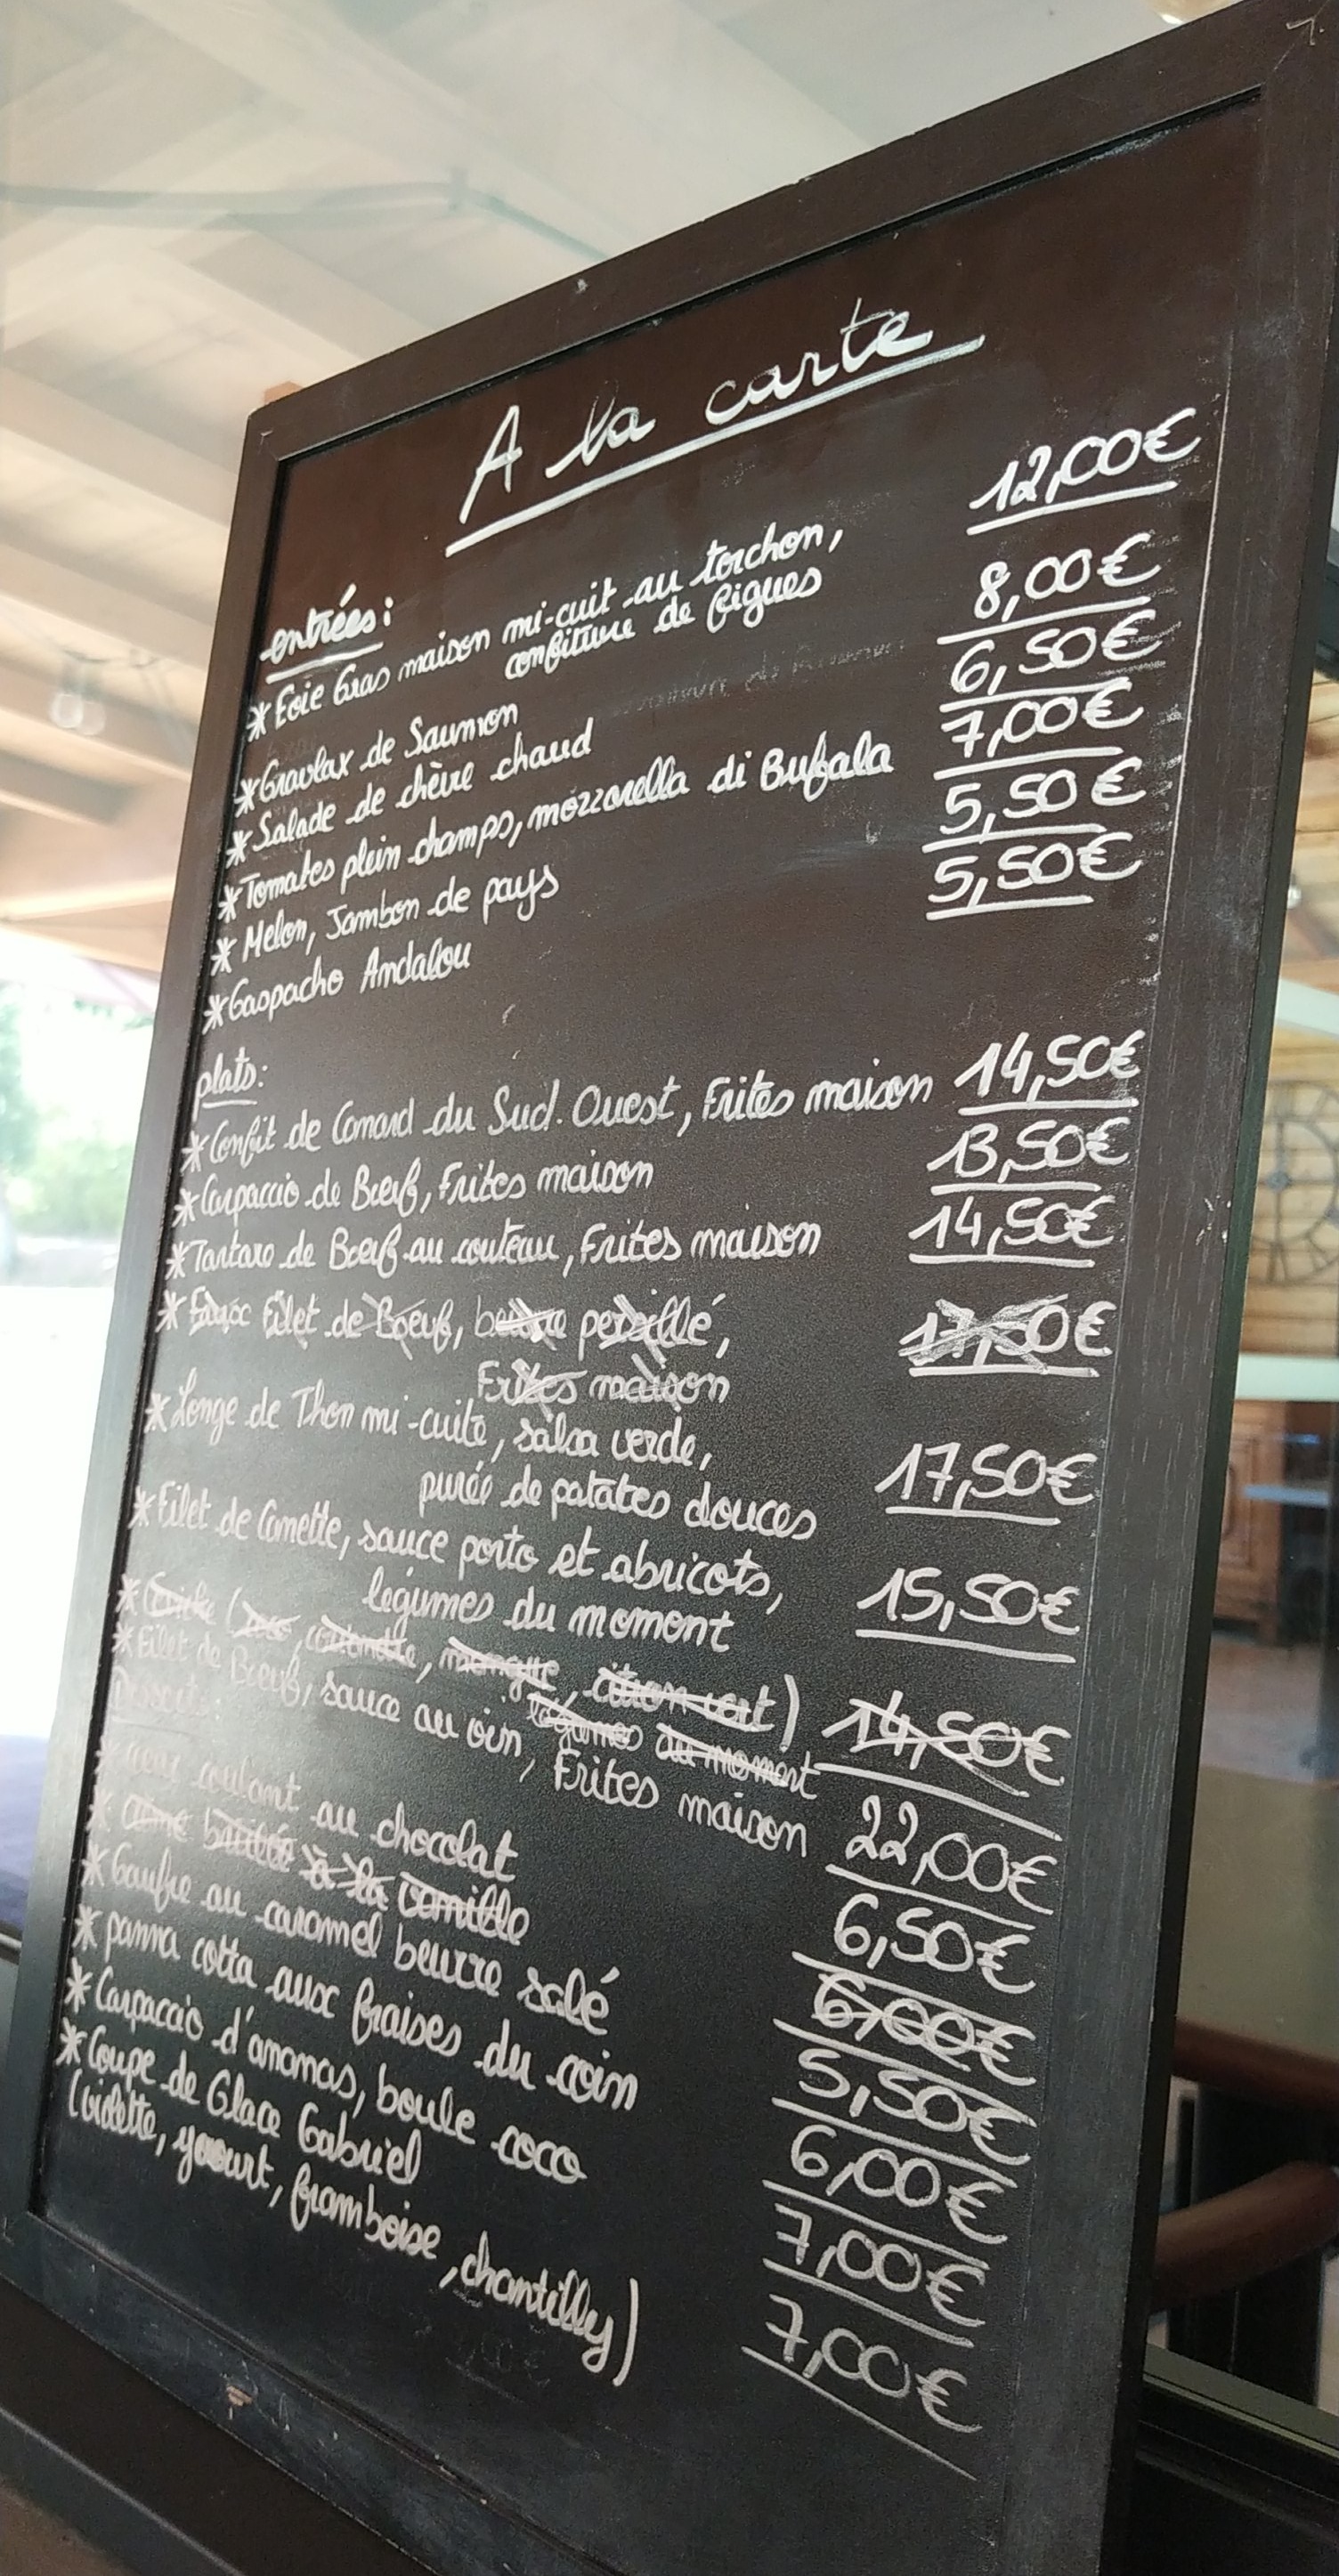 A la carte
entrées:
* Foie Gras maison mi-cuit au torchon, 12,00€
confiture de figues
* Gravlax de Saumon 8,00€
* Salade de chèvre chaud 6,50€
* Tomates plein champs, mozzarella di Bufala 7,00€
* Melon, Jambon de pays 5,50€
* Gaspacho Andalou 5,50€
plats:
* Confit de Canard du Sud.Ouest, Frites maison 14,50€
* Carpaccio de Bœuf, Frites maison 13,50€
* Tartare de Bœuf au couteau, Frites maison 14,50€
* Faux Filet de Boeuf, beurre persillé, 17,50€
Frites maison
* Longe de Thon mi-cuite, salsa verde,
purée de patates douces 17,50€
* Filet de Canette, sauce porto et abricots,
légumes du moment 15,50€
* (coriandre, mangue, citron vert) 14,50€
légumes du moment
* Filet de Bœuf, sauce au vin, Frites maison 22,00€
Desserts:
* coulant au chocolat 6,50€
* crème brûlée à la vanille 6,00€
* Gaufre au caramel beurre salé 5,50€
* panna cotta aux fraises du coin 6,00€
* Carpaccio d'ananas, boule coco 7,00€
* Coupe de Glace Gabriel 7,00€
(violette, yaourt, framboise, chantilly)